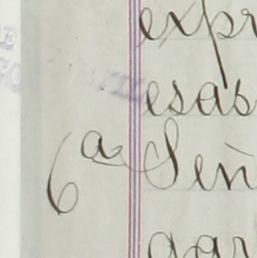 expr
esas
6ª Señ
gar